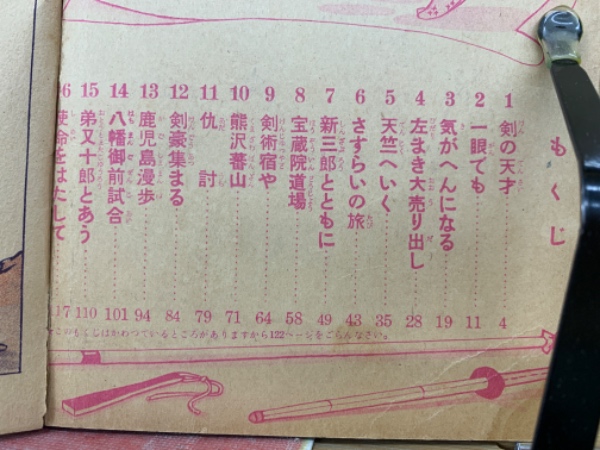 もくじ
1 剣の天才 4
2 一眼でも 11
3 気がへんになる 19
4 左まき大売り出し 28
5 天竺へいく 35
6 さすらいの旅 43
7 新三郎とともに 49
8 宝蔵院道場 58
9 剣術宿や 64
10 熊沢蕃山 71
11 仇討 79
12 剣豪集まる 84
13 鹿児島漫歩 94
14 八幡御前試合 101
15 弟又十郎とあう 110
16 使命をはたして 117
このもくじはかわつているところがありますから122ページをごらんなさい。